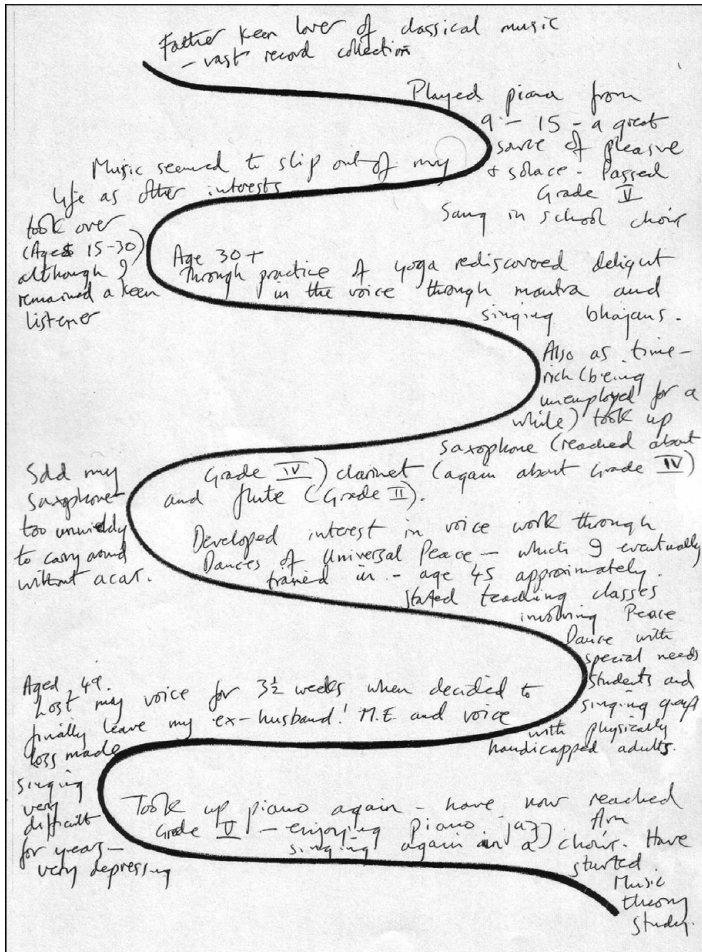 Father keen lover of classical music
- vast record collection
Played piano from
9 - 15 - a great
source of pleasure
& solace - Passed
Grade V
Sang in school choir
Music seemed to slip out of my
life as other interests
took over
(Ages 15-30)
although I
remained a keen
listener
Age 30+
Through practice of yoga rediscovered delight
in the voice through mantra and
singing bhajans.
Also as time-
rich (being
unemployed for a
while) took up
saxophone (reached about
Grade IV) clarinet (again about Grade IV)
and flute (Grade II).
Sold my
saxophone
too unwieldy
to carry around
without a car.
Developed interest in voice work through
Dances of Universal Peace - which I eventually
trained in - age 45 approximately.
Started teaching classes
involving Peace
Dance with
special needs
students and
singing groups
with physically
handicapped adults.
Aged 49.
Lost my voice for 3½ weeks when decided to
finally leave my 'ex-husband'! M.E and voice
loss made
singing
very
difficult
for years -
very depressing
Took up piano again - have now reached
Grade V - enjoying piano jazz. Am
singing again in a choir. Have
started
Music
theory
study.